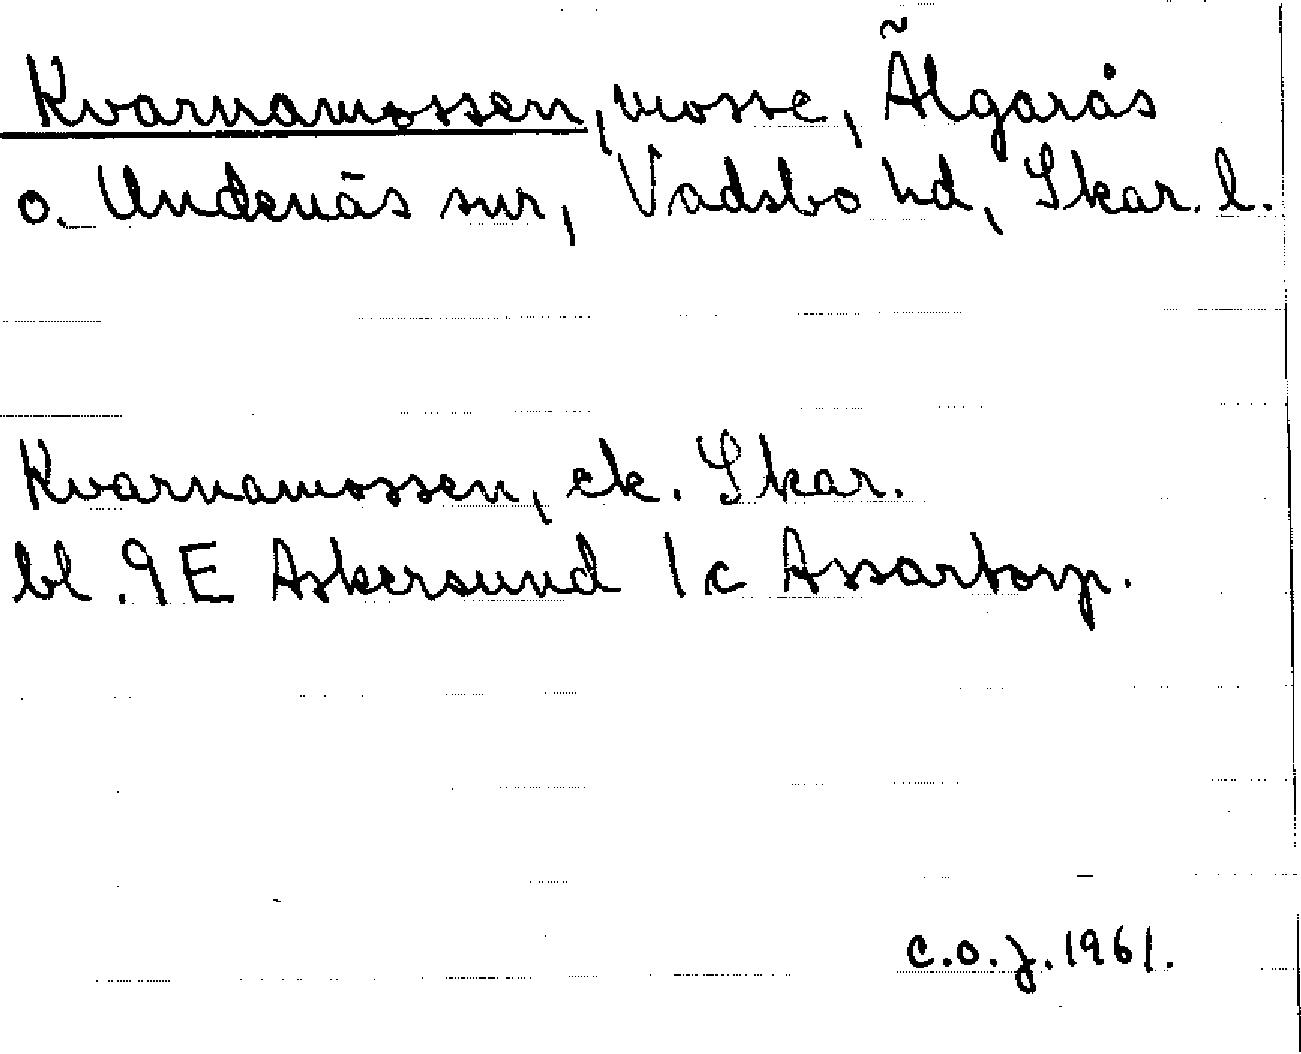 Kvarnamossen, mosse, Älgarås
o. Undenäs snr, Vadsbo hd, Skar. l.
Kvarnamossen, ek. Skar.
bl. 9E Askersund 1c Assartorp.
C.O.J. 1961.